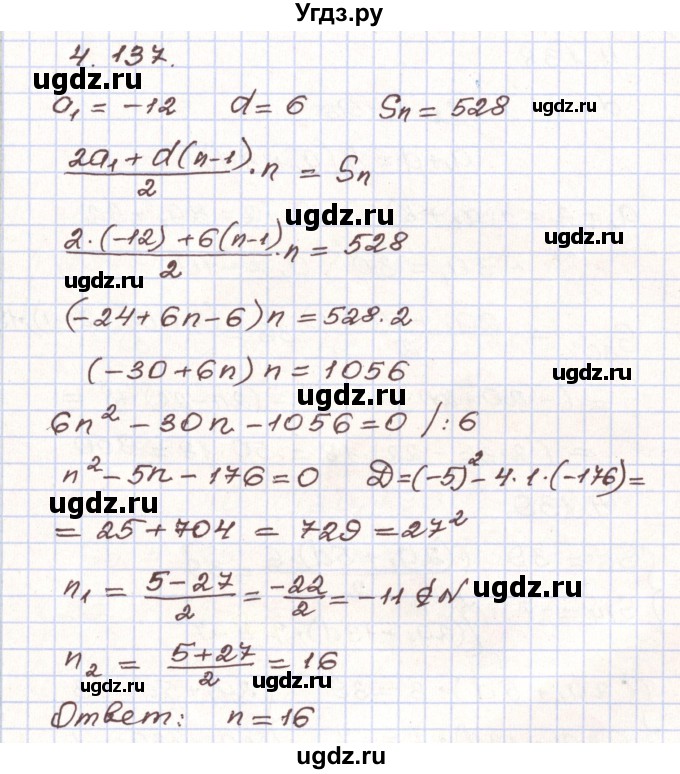 Угдз.ру
4. 137.
ugdz.ru
a₁ = -12 d = 6 Sn = 528 ugdz.ru
(2a₁ + d(n-1))/2 · n = Sn
ugdz.ru
(2·(-12) + 6(n-1))/2 · n = 528 ugdz.ru
ugdz.ru
(-24 + 6n - 6)n = 528·2
(-30 + 6n)n = 1056 ugdz.ru
ugdz.ru
6n² - 30n - 1056 = 0 /:6
n² - 5n - 176 = 0 D = (-5)² - 4·1·(-176) =
ugdz.ru
= 25 + 704 = 729 = 27²
n₁ = (5-27)/2 = -22/2 = -11 ∉ N ugdz.ru
n₂ = (5+27)/2 = 16
ugdz.ru ugdz.ru
Ответ: n = 16
ugdz.ru